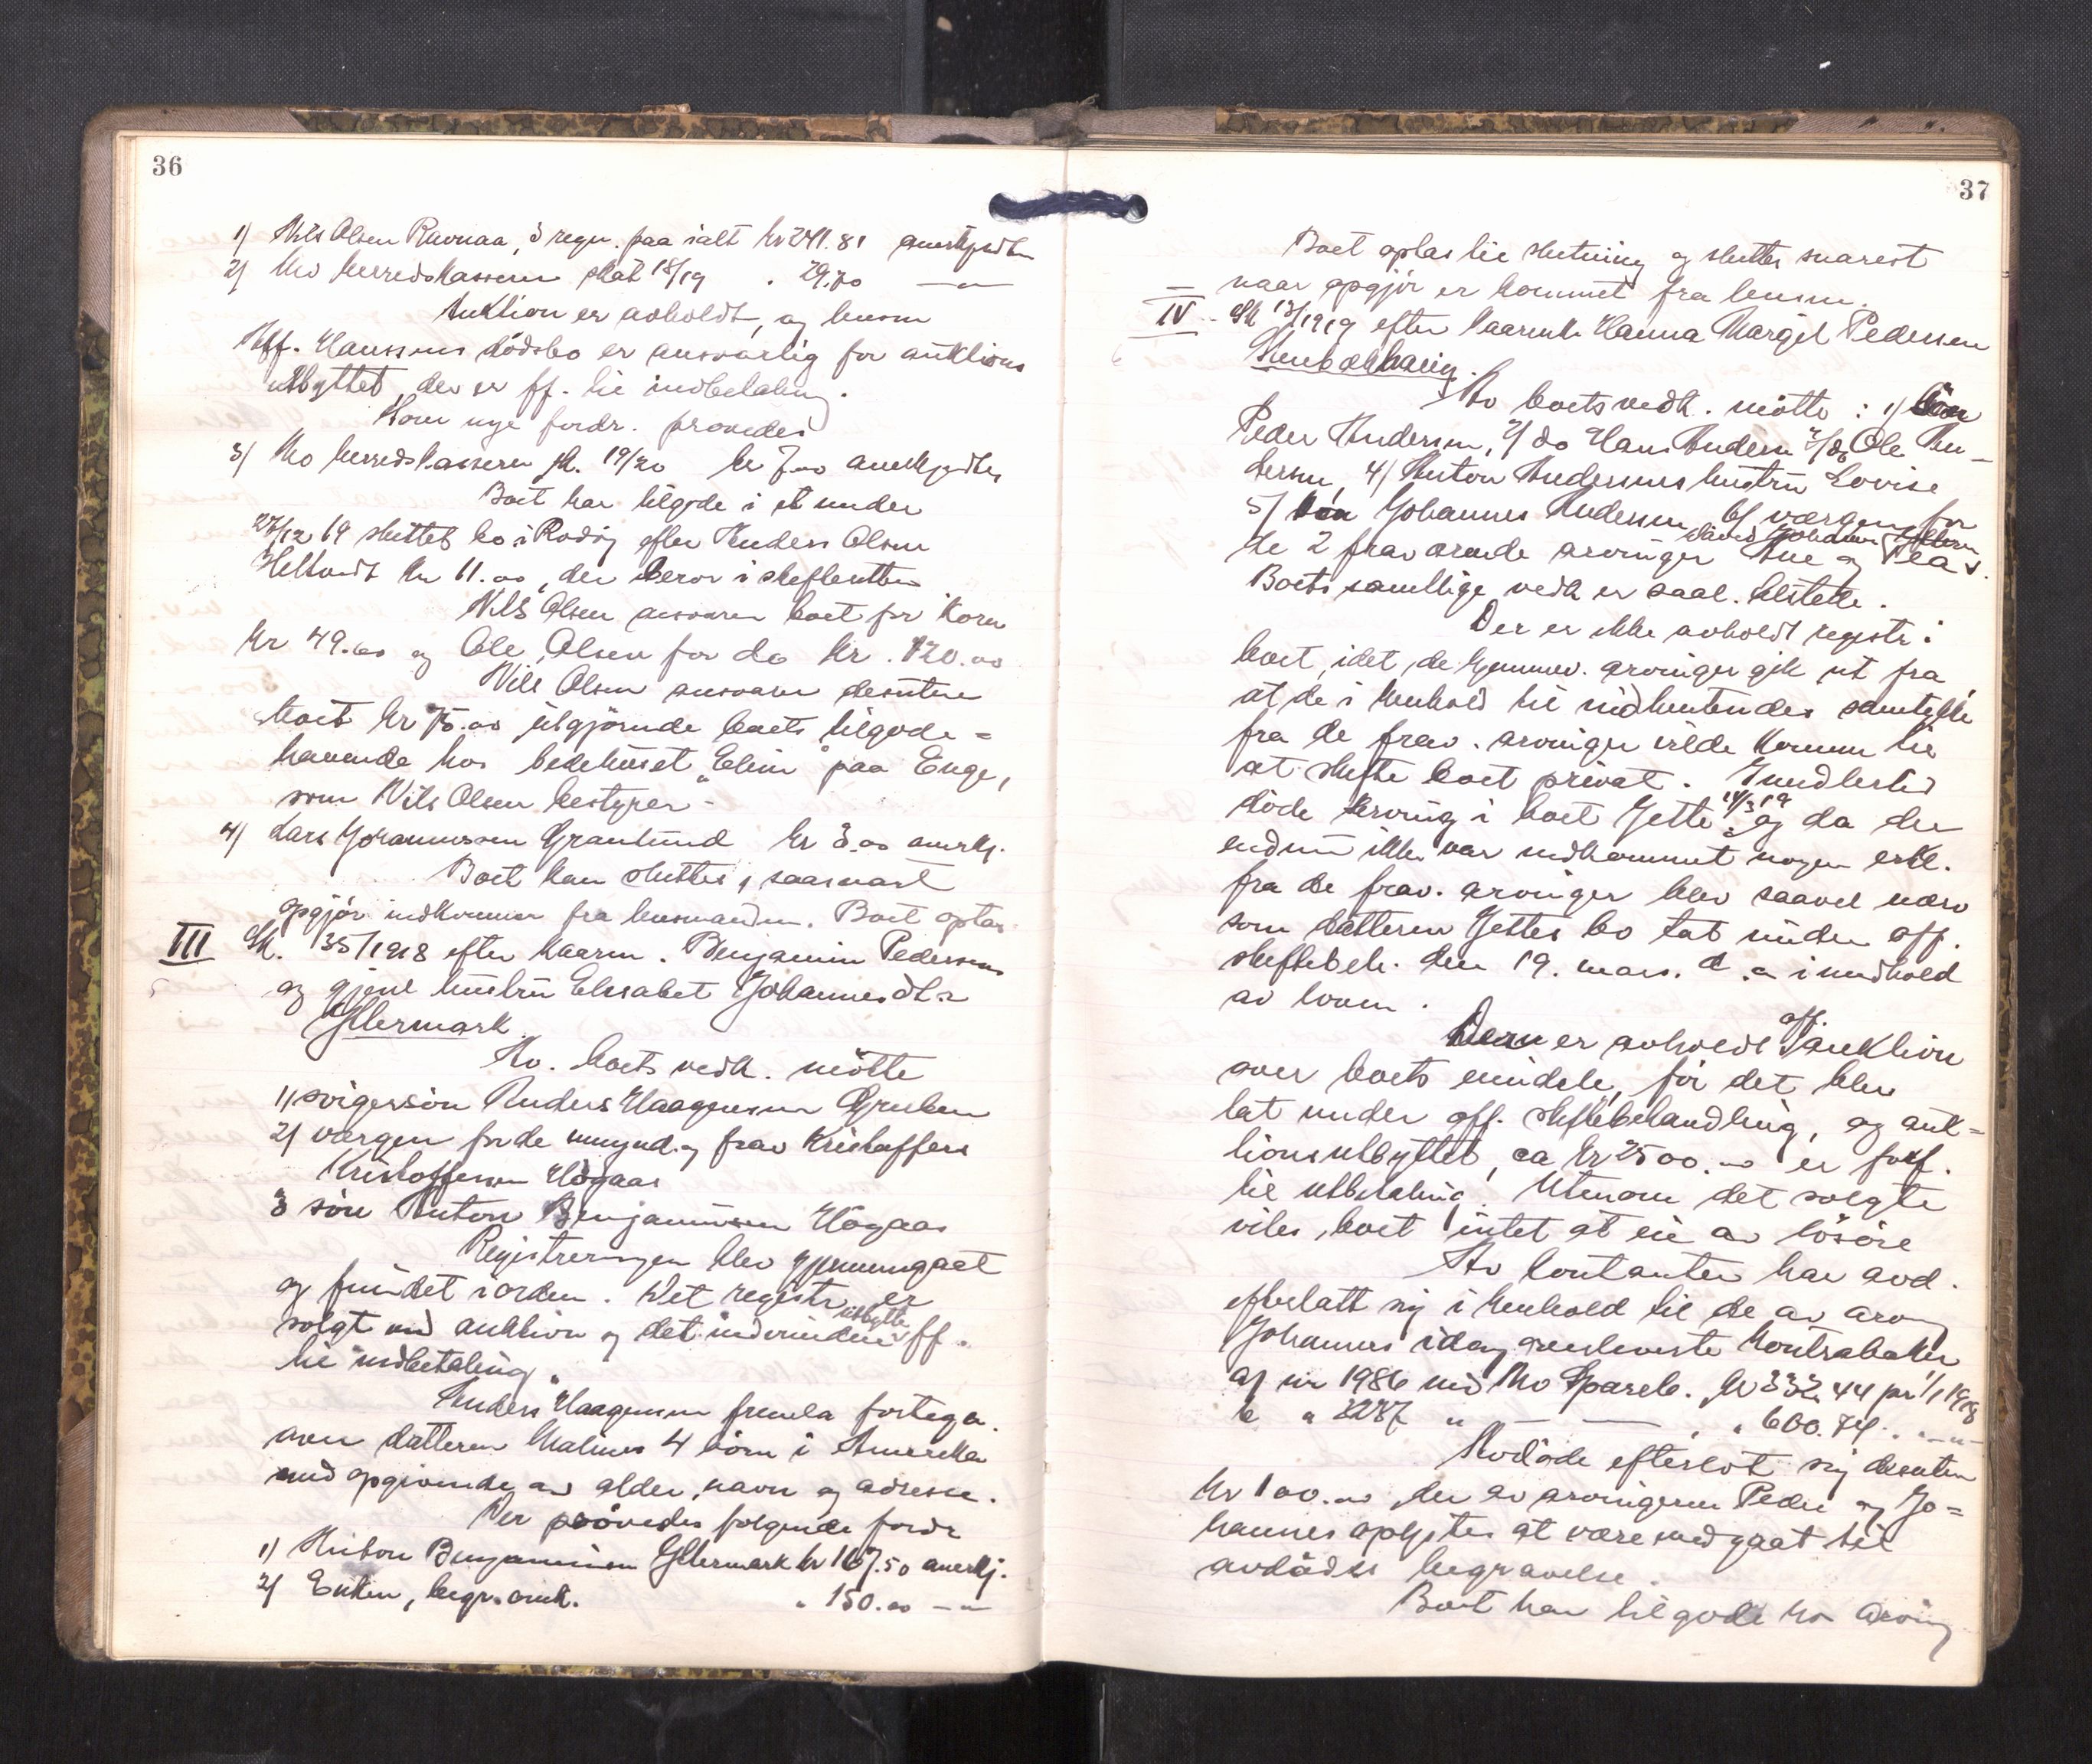 36
1) Nils Olsen Ravnaa, i regn. paa ialt kr 241.81 anerkjendtes
2) Mo herredskasserer skat 18/19 " 29.70 —"—
Auktion er avholdt, og lensm
Hff. Hanssens dödsbo er ansvarlig for auktions
utbyttet, der er ff. til indbetaling.
Som nye fordr. prövedes
3) Mo herredskasserer sk. 19/20 kr 7.00 anerkjendtes
Boet har tilgode i et under
27/12 19 sluttet bo i Rödöy efter Anders Olsen
Kr 11.00, der beror i skifteretten
Nils Olsen ansvarer boet for korn
kr 49.00 og Ole Olsen for do kr. 120.00
Nils Olsen ansvarer desuten
boet kr 75.00 utgjörende boets tilgode=
havende hos bedehuset "Elim" paa Enge,
som Nils Olsen bestyrer.
4) Lars Johannessen Granlund kr 3.00 anerkj.
Boet kan sluttes, saasnart
opgjör indkommer fra lensmanden. Boet optas
III Sk. 35/1918 efter kaarm. Benjamin Pedersens
og gjenl hustru Elisabet Johannesdtr
Yttermark.
Av. boets vedk. mötte
1) svigersön Anders Haagensen Gruben
2) vergen for de umynd. og frav Kristoffers
Kristoffersen Högaas
3 sön Anton Benjaminsen Högaas
Registreringen blev gjennemgaat
og fundet i orden. Det registr er
solgt ved auktion og det indvundne utbytte ff.
til indbetaling.
Anders Haagensen fremla fortegn.
over datteren Malines 4 börn i Amerika
med opgivende av alder, navn og adresse.
Der prövedes fölgende fordr
1) Anton Benjaminsen Yttermark kr 167.50 anerkj.
2) Enken, begr. omk. " 150.00 —"—
37
Boet optas til slutning og sluttes snarest
naar opgjör er kommet fra lensm.
IV. Sk 13/1919 efter kaarenke Hanna Margit Pedersen
Stenbækhaug.
Av boets vedk. mötte: 1)
Peder Andersen, 2/ do Hans Andersen 3/ do Ole An-
dersen, 4/ Anton Andersens hustru Lovise
5/ Johannes Andersen 6/ vergen for
de 2 fraværende arvinger Ane og Pea v.
Boets samtlige vedk er saal. tilstede.
Der er ikke avholdt registr i
boet, idet de hjemmev. arvinger gik ut fra
at de i henhold til indhentendes samtykke
fra de frav. arvinger vilde komme til
at skifte boet privat. Imidlertid
döde arving i boet Jette 14/3 19 og da der
endnu ikke var indkommet nogen erkl.
fra de frav. arvinger blev saavel nærv
som datteren Jettes bo tat under off.
skiftebeh. den 19. mars. d. a i medhold
av loven.
Der er avholdt off. auktion
over boets eiendele, för det blev
tat under off. skiftebehandling, og auk=
tionsutbyttet, ca kr 2500.00 er forf.
til utbetaling. Utenom det solgte
vites boet intet at eie av lösöre
Av kontanter har avd.
efterlatt sig i henhold til de av arving
Johannes idag fremleverte kontrabøker
a) nr 1986 ved Mo Spareb. kr 332.44 pr 1/1 1918
b " 3237 " — — " 600.74 " —"—
Avdöde efterlot sig desuten
kr 100.00, der av arvingerne Peder og Jo=
hannes oplystes at være medgaat til
avdödes begravelse.
Boet har tilgode hos arving